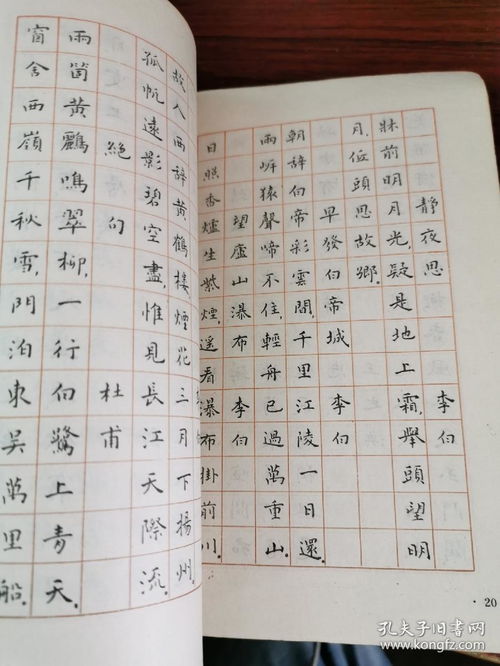 靜夜思 李白
牀前明月光,疑是地上霜,舉頭望明
月,低頭思故鄉.
早發白帝城 李白
朝辞白帝彩雲間,千里江陵一日還.
兩岍猿聲啼不住,輕舟已過萬重山.
望廬山瀑布 李白
日照香爐生紫煙,遥看瀑布掛前川.
故人西辞黄鶴樓,煙花三月下揚州.
孤帆遠影碧空盡,惟見長江天際流.
絕句 杜甫
兩箇黄鸝鳴翠柳,一行白鷺上青天.
窗含西嶺千秋雪,門泊東吴萬里船.
· 20
孔夫子旧书网
www.kongfz.com